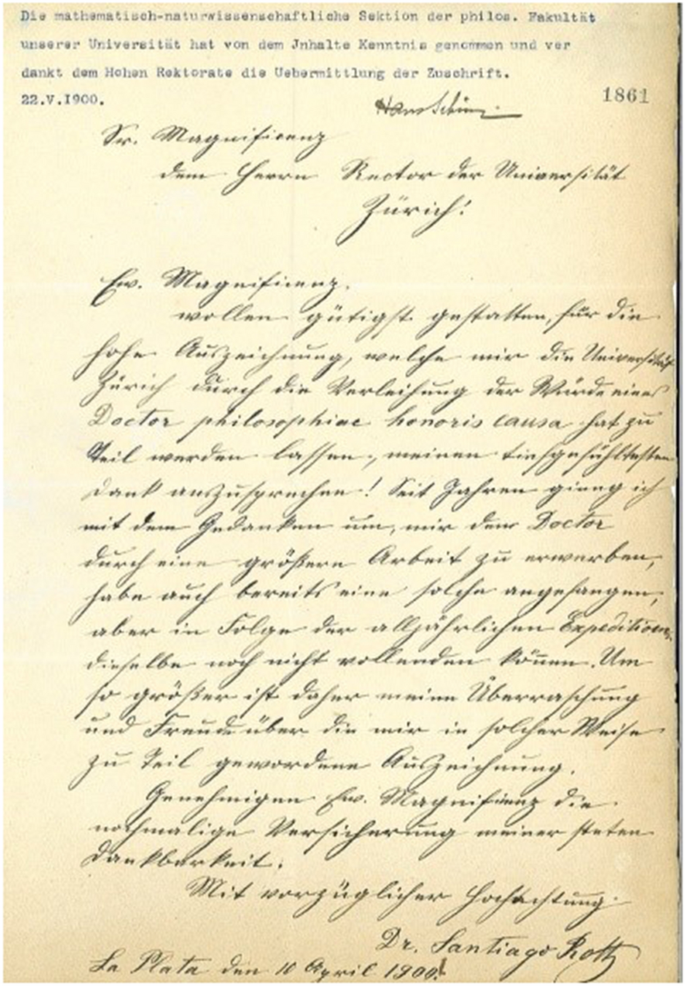 Die mathematisch-naturwissenschaftliche Sektion der philos. Fakultät
unserer Universität hat von dem Jnhalte Kenntnis genommen und ver
dankt dem Hohen Rektorate die Uebermittlung der Zuschrift.
22.V.1900.
Hans Schinz
1861
Sr. Magnificenz
dem Herrn Rector der Universität
Zürich!
Ew. Magnificenz.
wollen gütigst gestatten, für die
hohe Auszeichnung, welche mir die Universität
Zürich durch die Verleihung der Würde eines
Doctor philosophiae honoris causa hat zu
Teil werden lassen, meinen tiefgefühltesten
Dank auszusprechen! Seit Jahren gieng ich
mit dem Gedanken um, mir den Doctor
durch eine größere Arbeit zu erwerben,
habe auch bereits eine solche angefangen,
aber in Folge der alljährlichen Expeditionen
dieselbe noch nicht vollenden können. Um
so größer ist daher meine Überraschung
und Freude über die mir in solcher Weise
zu Teil gewordene Auszeichnung.
Genehmigen Ew. Magnificenz die
nochmalige Versicherung meiner steten
Dankbarkeit.
Mit vorzüglicher Hochachtung.
Dr. Santiago Roth
La Plata den 10 April 1900.